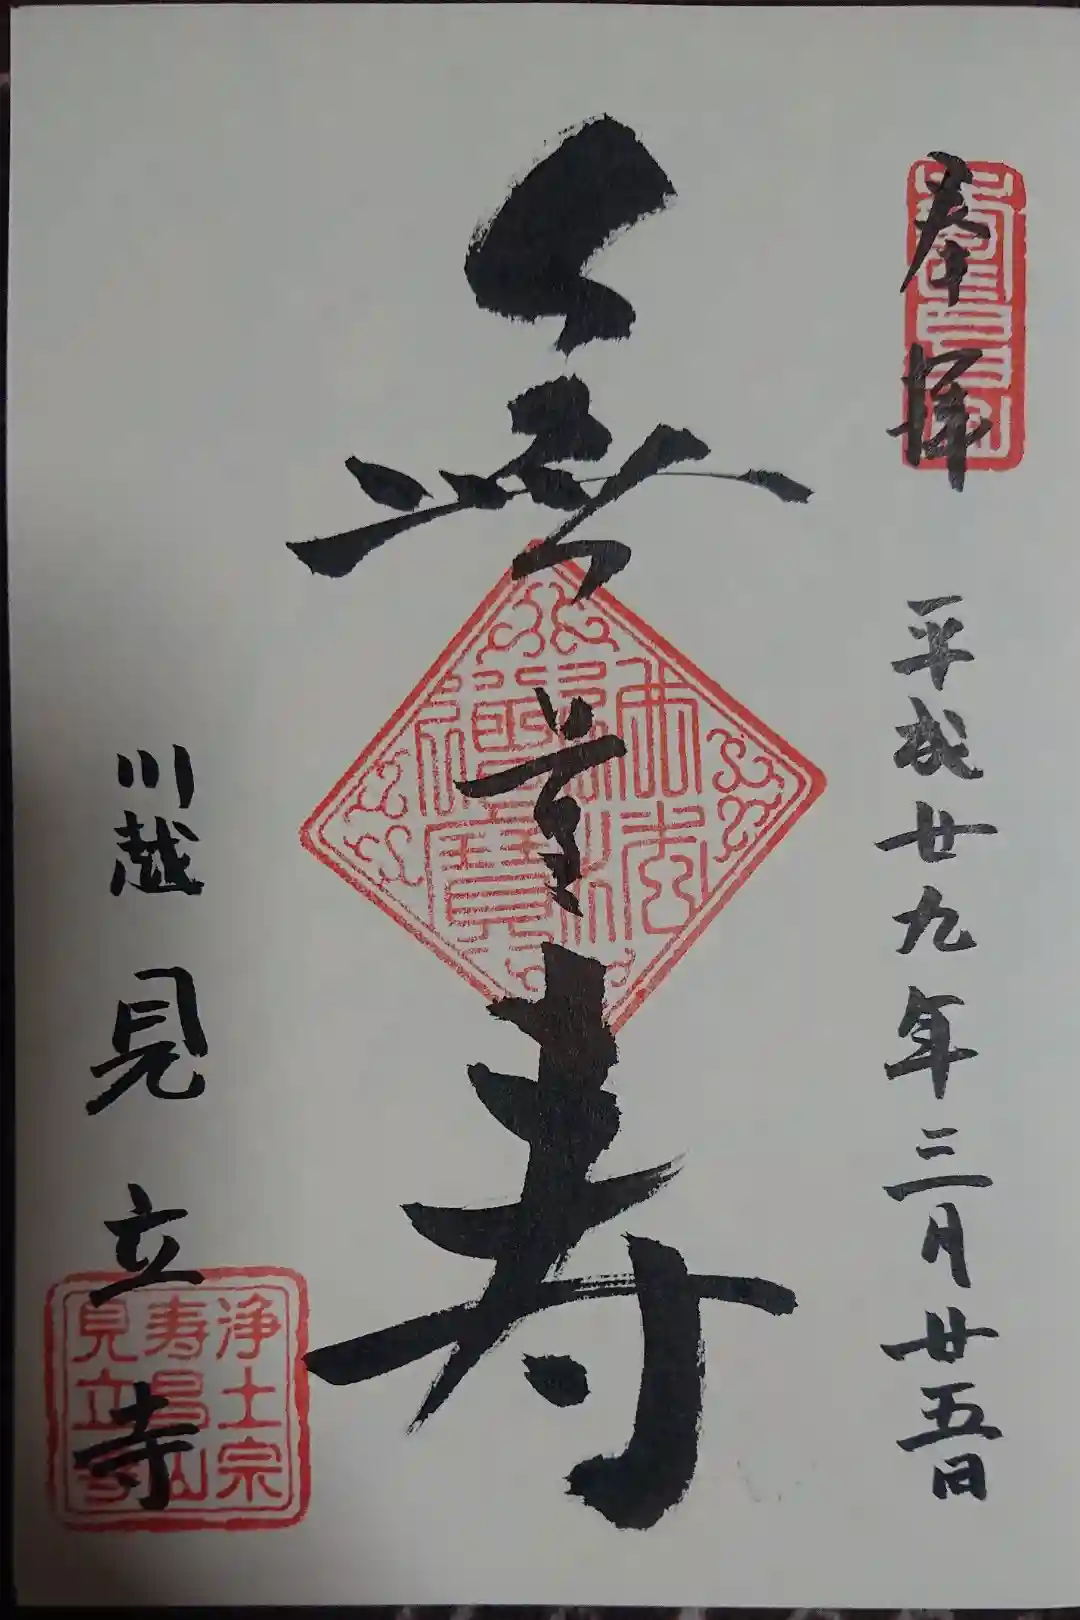 奉拝
平成廿九年三月廿五日
無量寿
川越
見立寺
浄土宗
寿昌山
見立寺